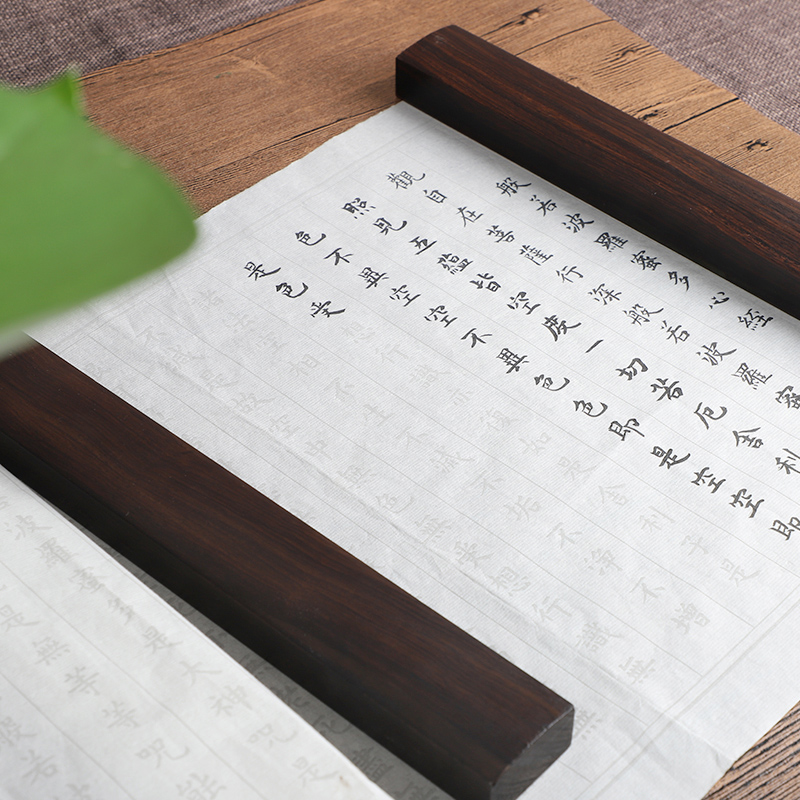 般若波羅蜜多心経
觀自在菩薩行深般若波羅蜜
照見五蘊皆空度一切苦厄舍利
色不異空空不異色色即是空空即
是色受想行識亦復如是舍利子是
相不生不滅不垢不淨不增
不減是故空中無色無受想行識無
波羅蜜多是大神咒是
是無等等咒能
般若